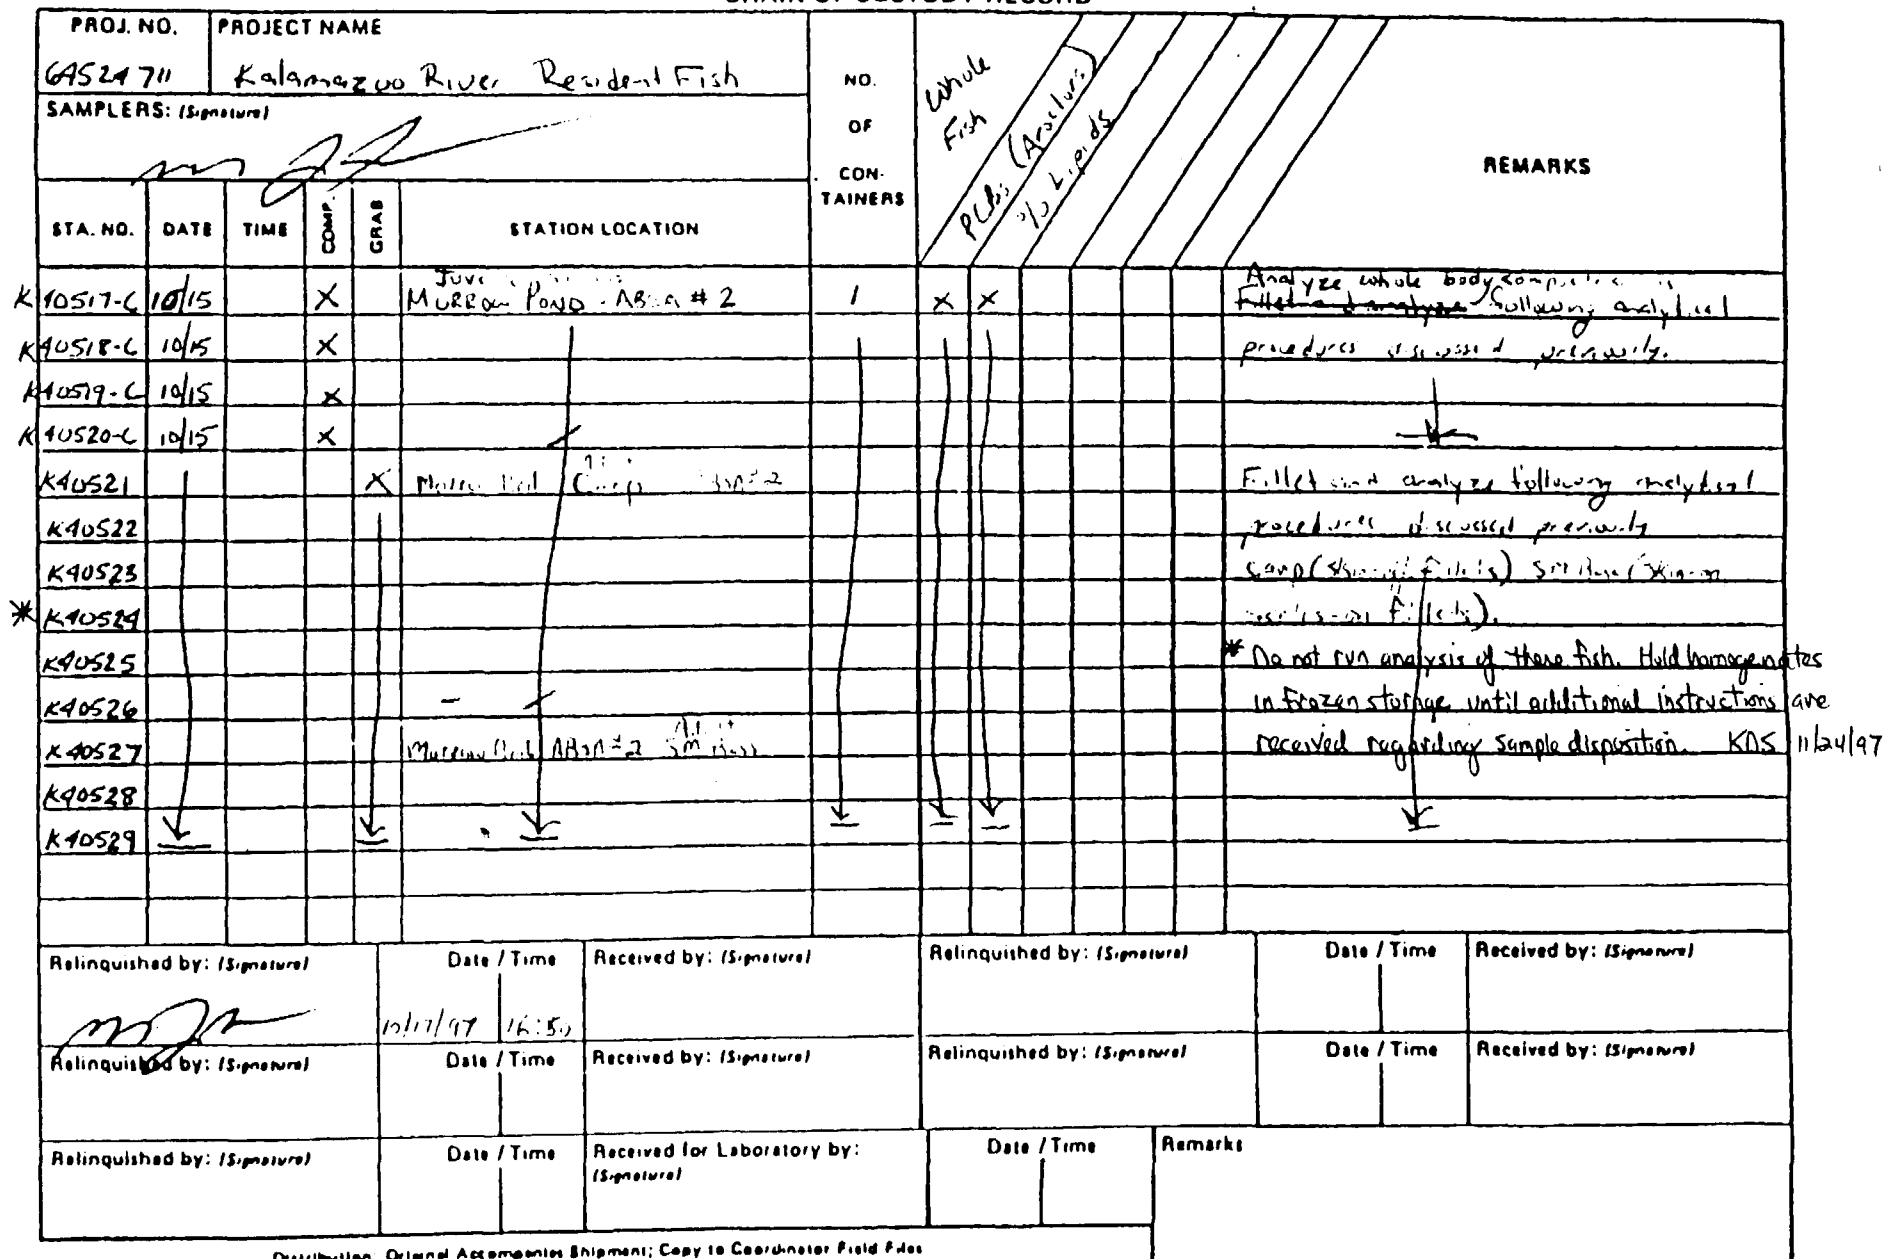 CHAIN OF CUSTODY RECORD
PROJ. NO.
PROJECT NAME
Kalamazoo River Resident Fish
SAMPLERS: (Signature)
NO.
OF
CON-
TAINERS
Whole
Fish
PCBs (Aroclors)
% Lipids
REMARKS
STA. NO. DATE TIME COMP. GRAB STATION LOCATION
K40517-C 10/15 X Pond # 2 1 X X Analyze whole body
Fillet and analyze following analytical
K40518-C 10/15 X procedures discussed previously.
K40519-C 10/15 X
K40520-C 10/15 X
K40521 X Carp Fillet and analyze following analytical
K40522 procedures discussed previously
K40523 carp
* K40524
K40525 * Do not run analysis of these fish. Hold homogenates
K40526 in frozen storage until additional instructions are
K40527 ABSA #2 received regarding sample disposition. KDS 11/24/97
K40528
K40529
Relinquished by: (Signature) Date / Time Received by: (Signature) Relinquished by: (Signature) Date / Time Received by: (Signature)
10/17/97 16:50
Relinquished by: (Signature) Date / Time Received by: (Signature) Relinquished by: (Signature) Date / Time Received by: (Signature)
Relinquished by: (Signature) Date / Time Received for Laboratory by: Date / Time Remarks
(Signature)
Distribution: Original Accompanies Shipment; Copy to Coordinator Field Files